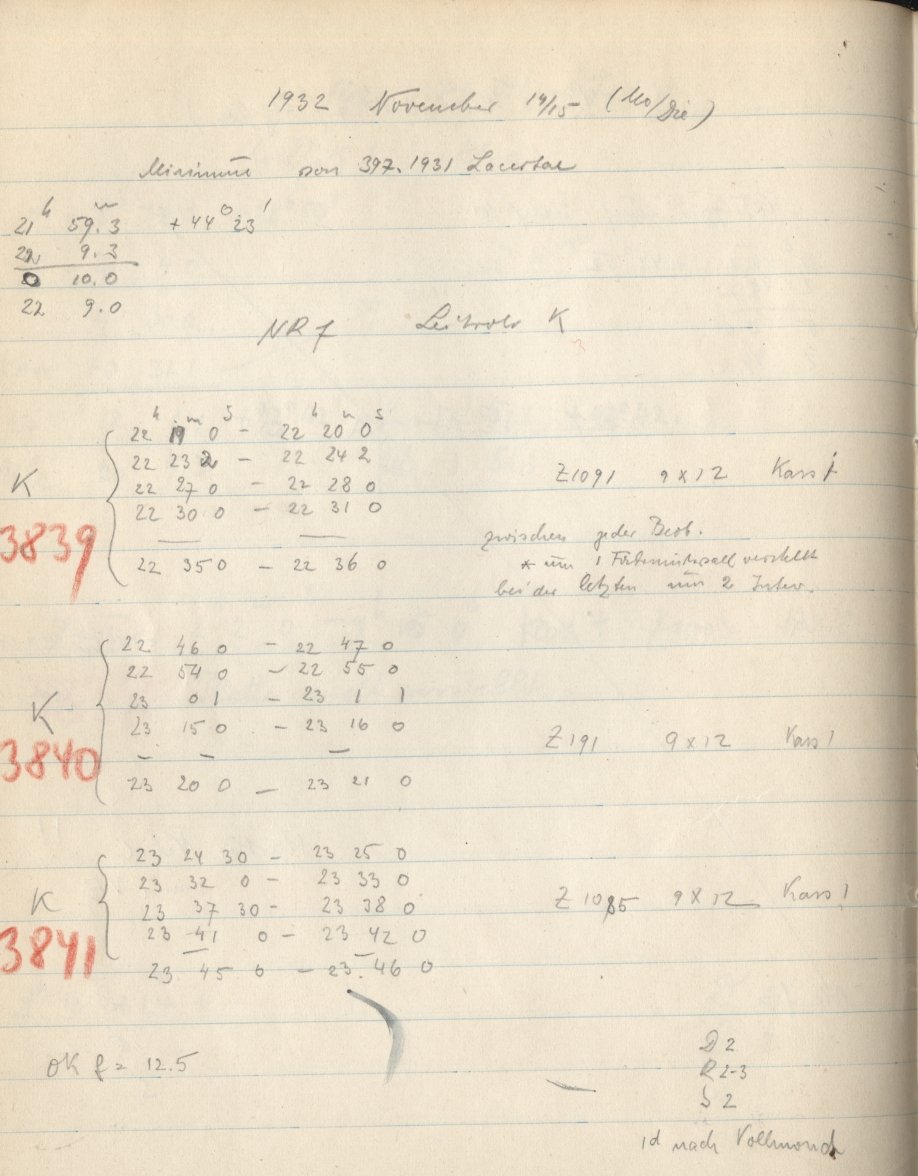 1932 November 14/15 (Mo/Die)
Minimum von 397.1931 Lacertae
21h 59m.3 +44° 23'
22 9.3
0 10.0
22 9.0
NR f Leitrohr K
22h 19m 0s - 22h 20m 0s
22 23 2 - 22 24 2
K 22 27 0 - 22 28 0 Z1091 9x12 Kass 1
22 30 0 - 22 31 0
3839 — — zwischen jeder Beob.
22 35 0 - 22 36 0 * um 1 Fadenintervall verstellt
bei der letzten um 2 Inter.
22 46 0 - 22 47 0
22 54 0 - 22 55 0
K 23 0 1 - 23 1 1
23 15 0 - 23 16 0 Z191 9x12 Kass 1
3840 — — —
23 20 0 - 23 21 0
23 24 30 - 23 25 0
23 32 0 - 23 33 0
K 23 37 30 - 23 38 0 Z1085 9x12 Kass 1
3841 23 41 0 - 23 42 0
23 45 0 - 23 46 0
OK f = 12.5
D 2
R 2-3
S 2
1d nach Vollmond